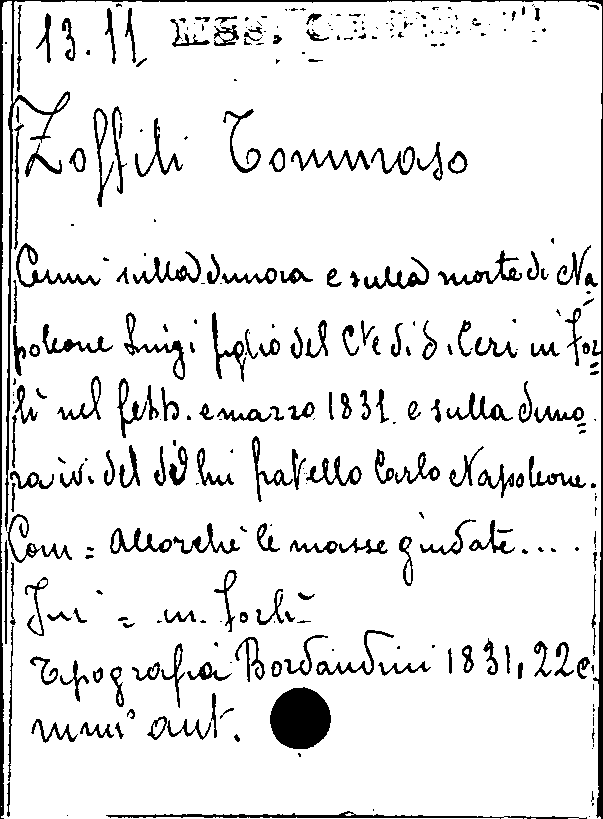 13.11 MSS.
Zoffili Tommaso
Cenni sulla dimora e sulla morte di Na=
poleone Luigi figlio del Cte di S. Leri in For=
lì nel febb. e marzo 1831 e sulla dimo=
ra ivi del di lui fratello Carlo Napoleone.
Com = Allorchè le masse guidate....
Fini = in Forlì
Tipografia Bordandini 1831, 22 c.
mm aut.